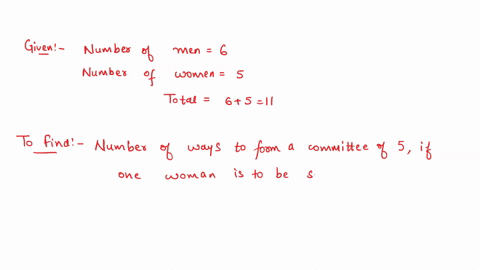 Given:- Number of men = 6
Number of women = 5
Total = 6+5=11
To find:- Number of ways to form a committee of 5, if
one woman is to be s